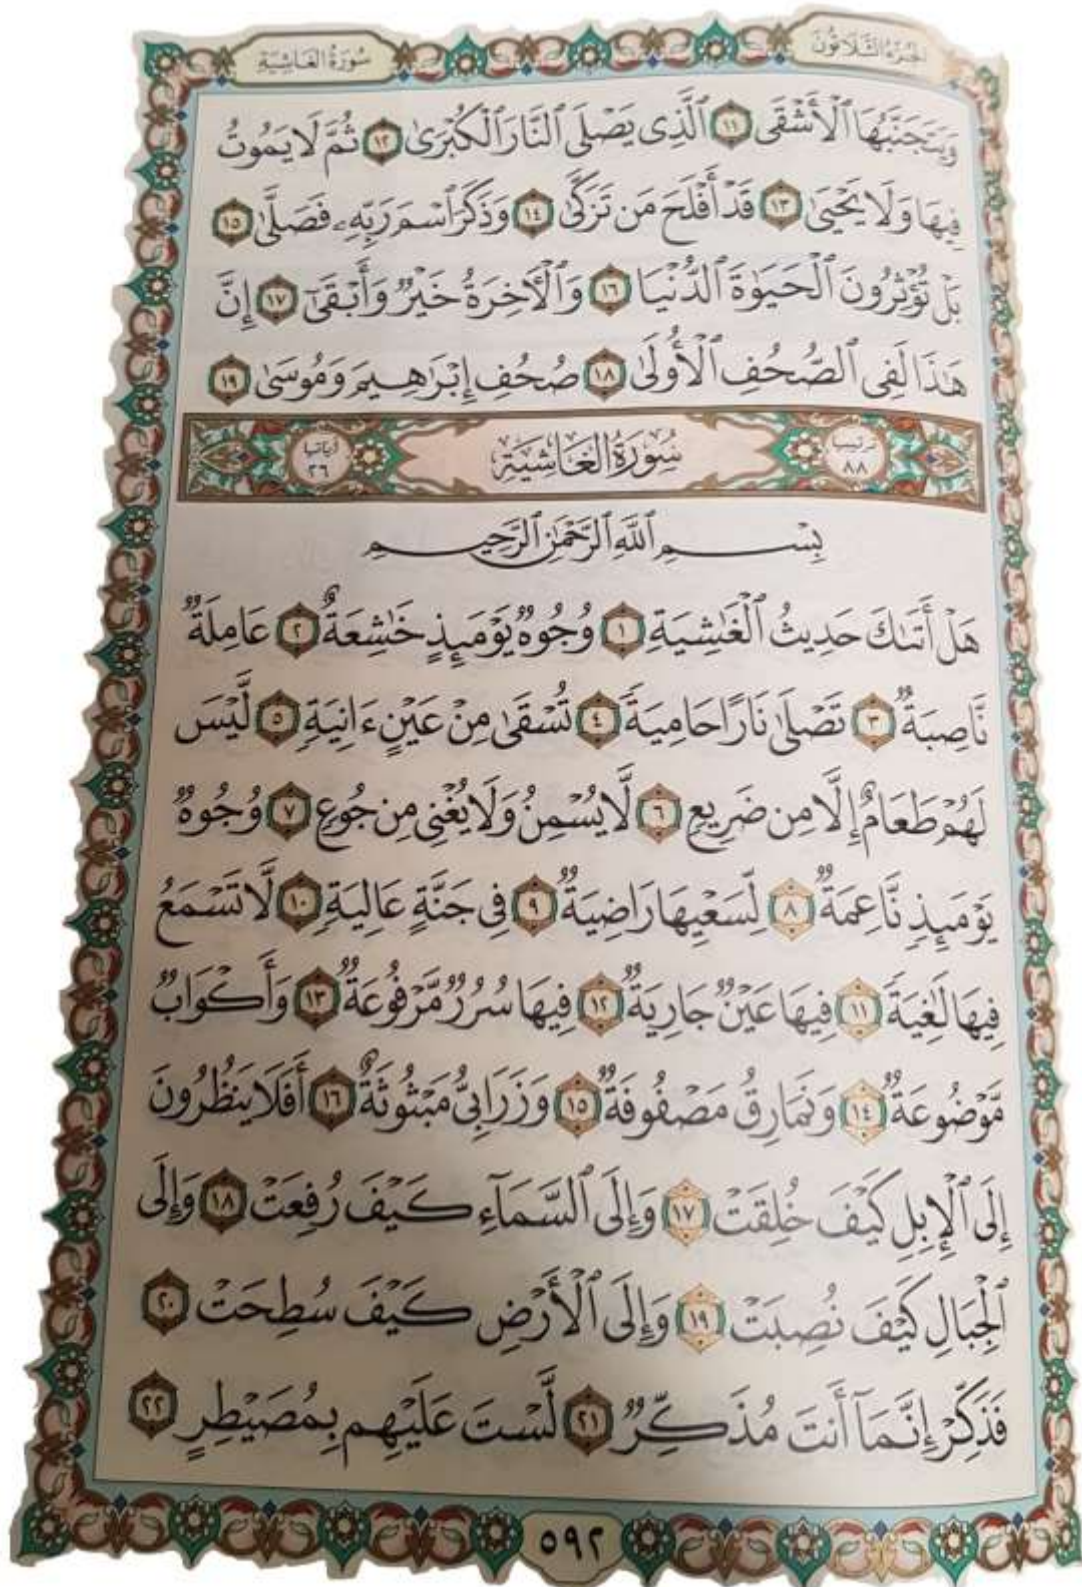 سُورَةُ الغَاشِيَةِ
الجُزْءُ الثَّلَاثُونَ
وَيَتَجَنَّبُهَا ٱلْأَشْقَى ١١ ٱلَّذِى يَصْلَى ٱلنَّارَ ٱلْكُبْرَىٰ ١٢ ثُمَّ لَا يَمُوتُ
فِيهَا وَلَا يَحْيَىٰ ١٣ قَدْ أَفْلَحَ مَن تَزَكَّىٰ ١٤ وَذَكَرَ ٱسْمَ رَبِّهِۦ فَصَلَّىٰ ١٥
بَلْ تُؤْثِرُونَ ٱلْحَيَوٰةَ ٱلدُّنْيَا ١٦ وَٱلْأَخِرَةُ خَيْرٌ وَأَبْقَىٰٓ ١٧ إِنَّ
هَٰذَا لَفِى ٱلصُّحُفِ ٱلْأُولَىٰ ١٨ صُحُفِ إِبْرَٰهِيمَ وَمُوسَىٰ ١٩
ترتيبها ٨٨ سُورَةُ الغَاشِيَةِ آياتها ٢٦
بِسْمِ ٱللَّهِ ٱلرَّحْمَٰنِ ٱلرَّحِيمِ
هَلْ أَتَىٰكَ حَدِيثُ ٱلْغَٰشِيَةِ ١ وُجُوهٌ يَوْمَئِذٍ خَٰشِعَةٌ ٢ عَامِلَةٌ
نَّاصِبَةٌ ٣ تَصْلَىٰ نَارًا حَامِيَةً ٤ تُسْقَىٰ مِنْ عَيْنٍ ءَانِيَةٍ ٥ لَّيْسَ
لَهُمْ طَعَامٌ إِلَّا مِن ضَرِيعٍ ٦ لَّا يُسْمِنُ وَلَا يُغْنِى مِن جُوعٍ ٧ وُجُوهٌ
يَوْمَئِذٍ نَّاعِمَةٌ ٨ لِّسَعْيِهَا رَاضِيَةٌ ٩ فِى جَنَّةٍ عَالِيَةٍ ١٠ لَّا تَسْمَعُ
فِيهَا لَٰغِيَةً ١١ فِيهَا عَيْنٌ جَارِيَةٌ ١٢ فِيهَا سُرُرٌ مَّرْفُوعَةٌ ١٣ وَأَكْوَابٌ
مَّوْضُوعَةٌ ١٤ وَنَمَارِقُ مَصْفُوفَةٌ ١٥ وَزَرَابِىُّ مَبْثُوثَةٌ ١٦ أَفَلَا يَنظُرُونَ
إِلَى ٱلْإِبِلِ كَيْفَ خُلِقَتْ ١٧ وَإِلَى ٱلسَّمَآءِ كَيْفَ رُفِعَتْ ١٨ وَإِلَى
ٱلْجِبَالِ كَيْفَ نُصِبَتْ ١٩ وَإِلَى ٱلْأَرْضِ كَيْفَ سُطِحَتْ ٢٠
فَذَكِّرْ إِنَّمَآ أَنتَ مُذَكِّرٌ ٢١ لَّسْتَ عَلَيْهِم بِمُصَيْطِرٍ ٢٢
٥٩٢